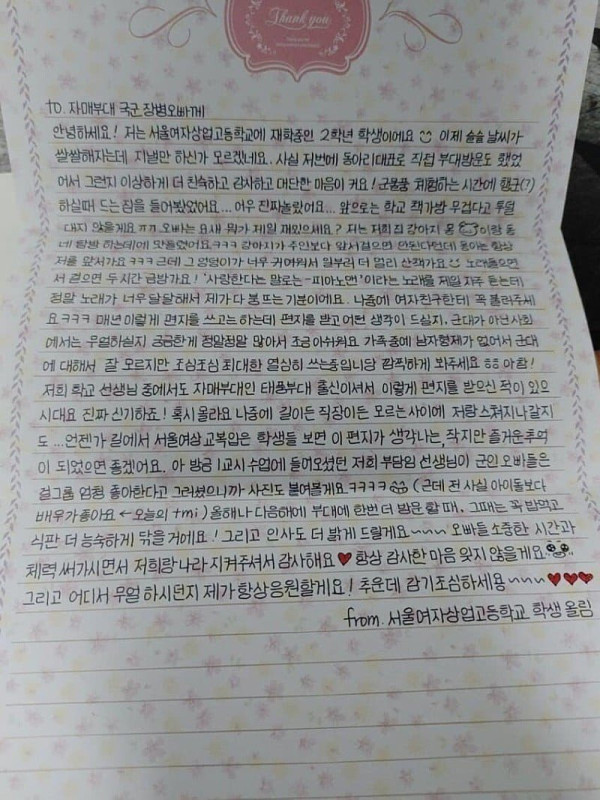 Thank you
to. 자매부대 국군 장병오빠께
안녕하세요! 저는 서울여자상업고등학교에 재학중인 2학년 학생이에요 이제 슬슬 날씨가
쌀쌀해지는데 지낼만 하신가 모르겠네요. 사실 저번에 동아리대표로 직접 부대방문도 했었
어서 그런지 이상하게 더 친숙하고 감사하고 대단한 마음이 커요! 군용품 체험하는 시간에 행군(?)
하실때 드는 짐을 들어봤었어요... 어우 진짜놀랐어요... 앞으로는 학교 책가방 무겁다고 투덜
대지 않을게요ㅠㅠ 오빠는 요새 뭐가 제일 재밌으세요? 저는 저희집 강아지 몽 이랑 동
네 탐방 하는데에 맛들렸어요ㅋㅋㅋ 강아지가 주인보다 앞서걸으면 안된다던데 몽이는 항상
저를 앞서가요ㅋㅋㅋ 근데 그 엉덩이가 너무 귀여워서 일부러 더 멀리 산책가요 노래들으면
서 걸으면 두시간 금방가요! '사랑한다는 말로는-피아노맨' 이라는 노래를 제일 자주 듣는데
정말 노래가 너무 달달해서 제가 다 붕 뜨는 기분이에요. 나중에 여자친구한테 꼭 불러주세
요ㅋㅋㅋ 매년 이렇게 편지를 쓰고는 하는데 편지를 받고 어떤 생각이 드실지, 군대가 아닌 사회
에서는 무얼하실지 궁금한게 정말정말 많아서 조금 아쉬워요 가족중에 남자형제가 없어서 군대
에 대해서 잘 모르지만 조심조심 최대한 열심히 쓰는중입니당 깜찍하게 봐주세요 ㅎㅎ 아참!
저희 학교 선생님 중에서도 자매부대인 태풍부대 출신이셔서 이렇게 편지를 받으신 적이 있으
시대요 진짜 신기하죠! 혹시 몰라요 나중에 길이든 직장이든 모르는사이에 저랑 스쳐지나갈지
도 ...언젠가 길에서 서울여상 교복입은 학생들 보면 이 편지가 생각나는, 작지만 즐거운추억
이 되었으면 좋겠어요. 아 방금 1교시 수업에 들어오셨던 저희 부담임 선생님이 군인 오빠들은
걸그룹 엄청 좋아한다고 그러셨으니까 사진도 붙여볼게요ㅋㅋㅋㅋ (근데 전 사실 아이돌보다
배우가좋아요 ← 오늘의 tmi) 올해나 다음해에 부대에 한번 더 방문 할 때, 그때는 꼭 밥먹고
식판 더 능숙하게 닦을 거에요! 그리고 인사도 더 밝게 드릴게요~~~ 오빠들 소중한 시간과
체력 써가시면서 저희랑 나라 지켜주셔서 감사해요♥ 항상 감사한 마음 잊지 않을게요
그리고 어디서 무얼 하시던지 제가 항상응원할게요! 추운데 감기조심하세용~~~ ♥♥♥
from. 서울여자상업고등학교 학생 올림